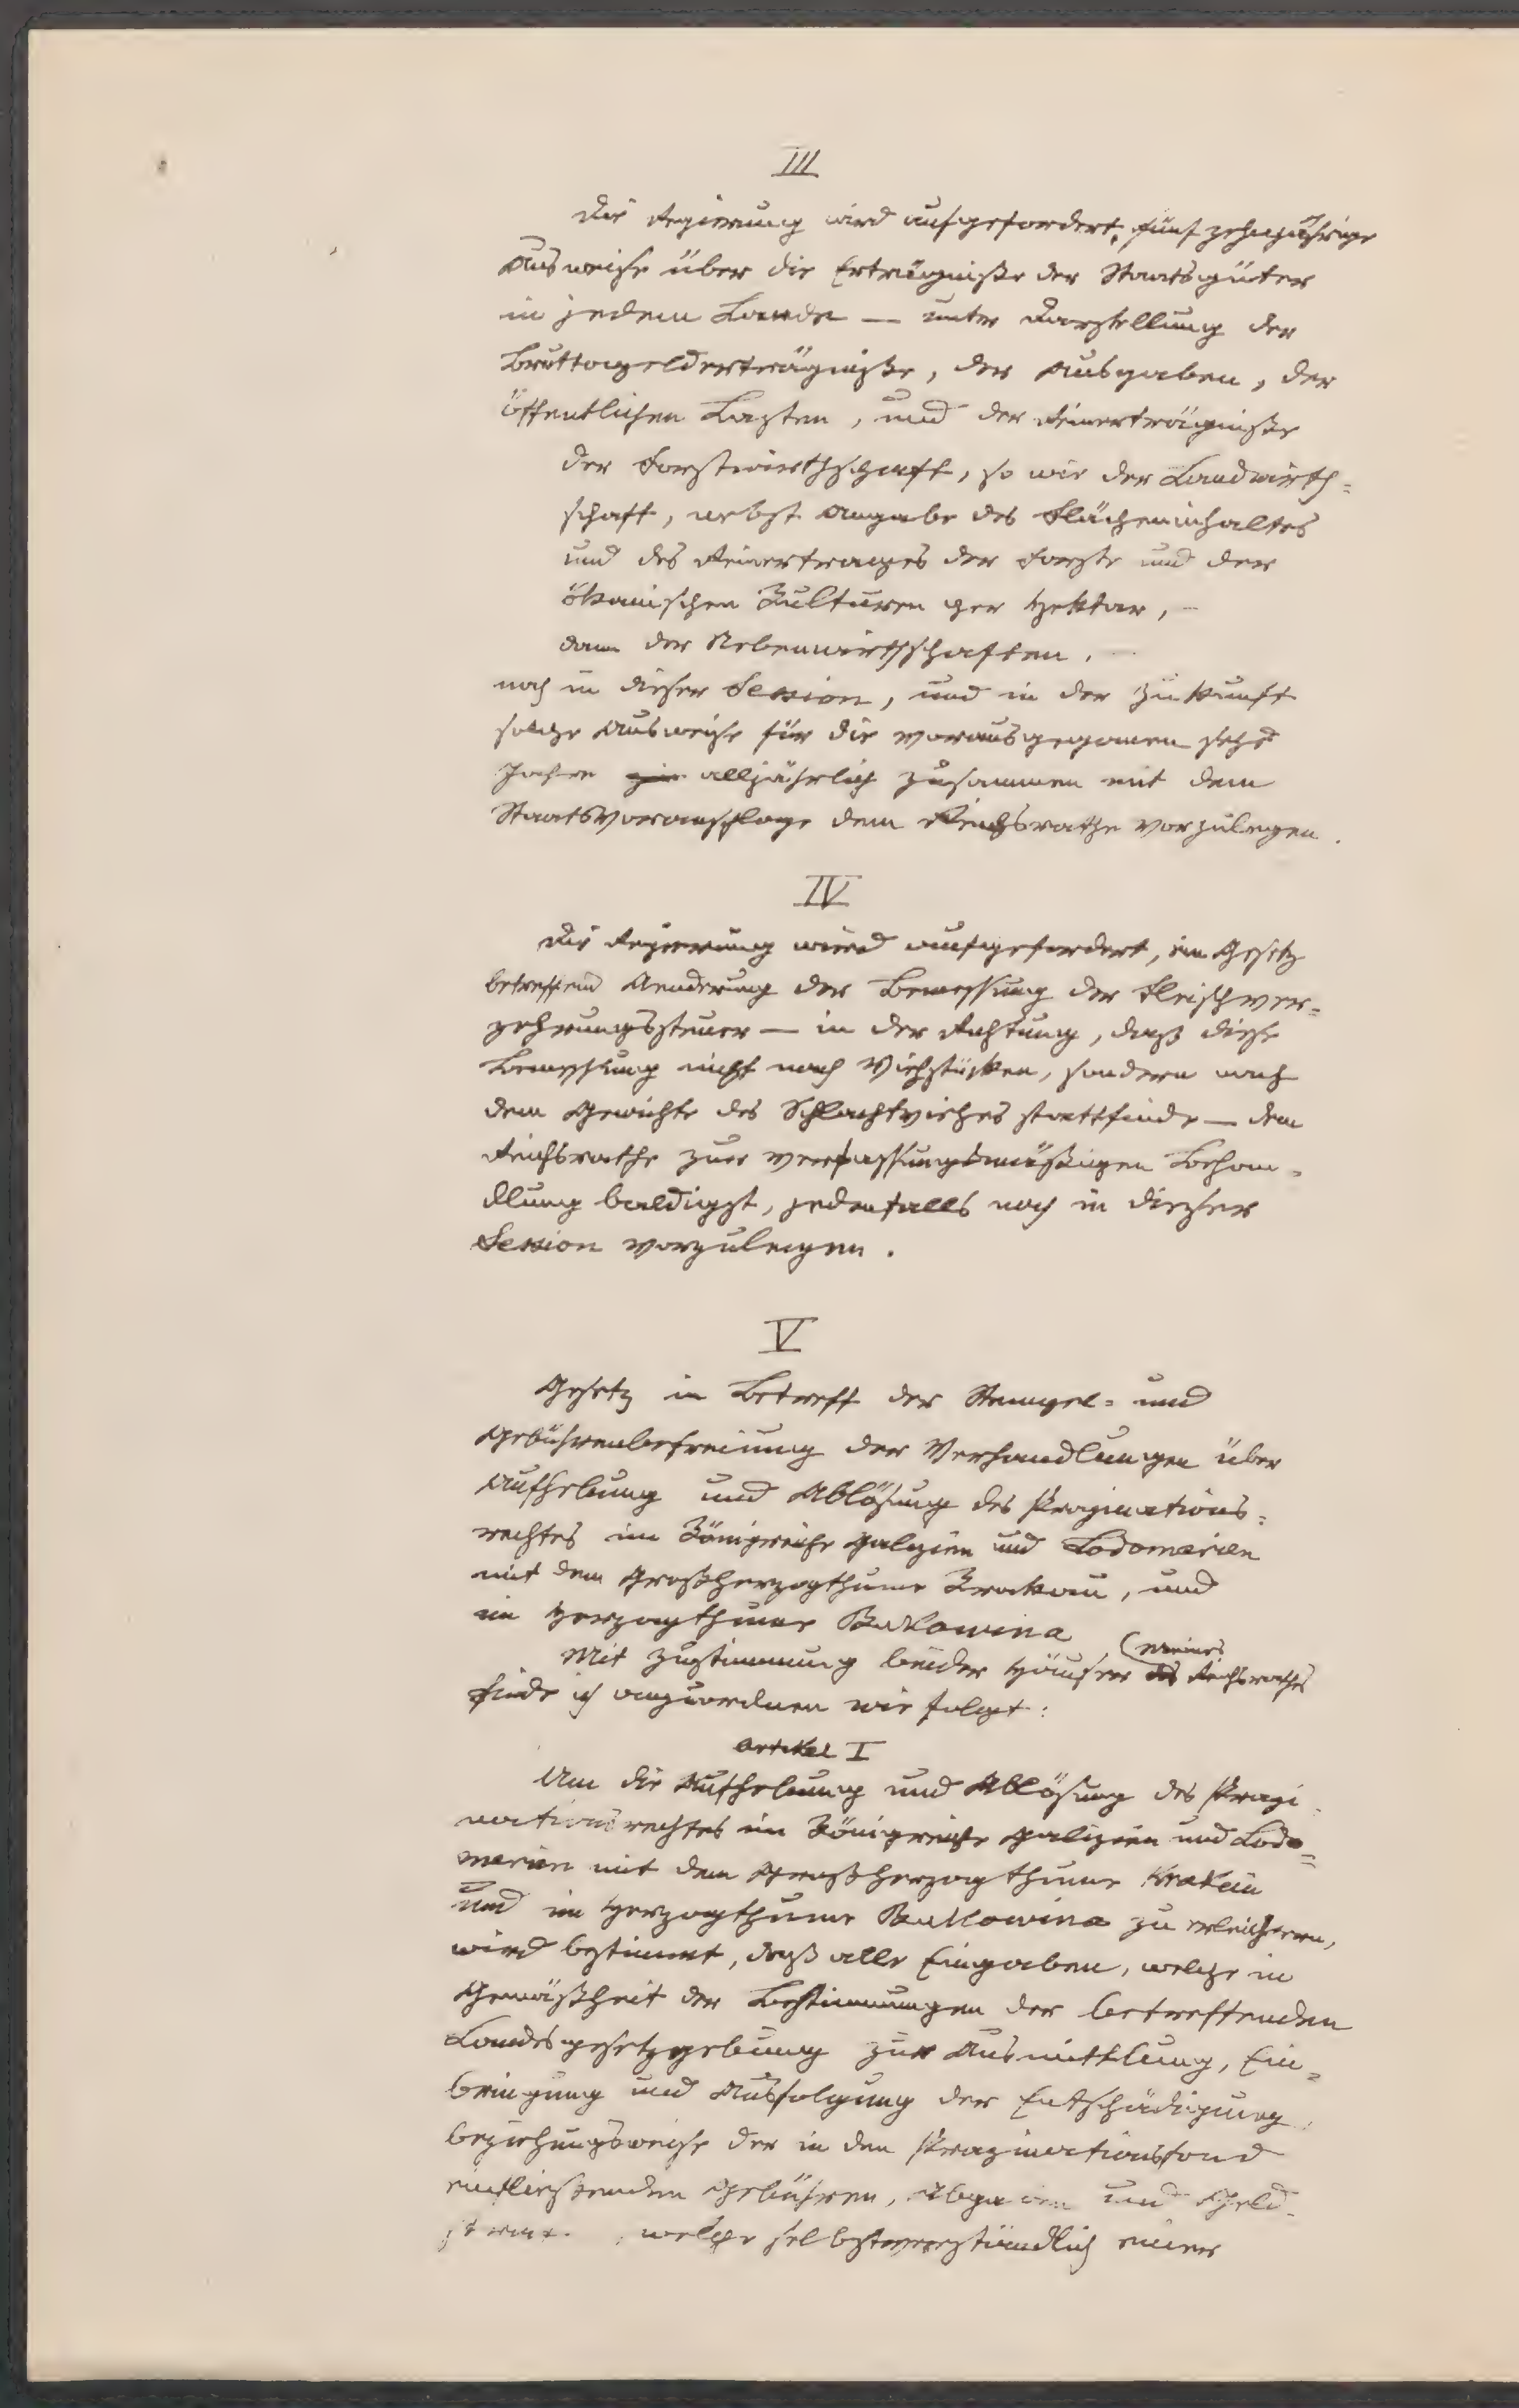 III
Die Regierung wird aufgefordert, fünfzehnjährige
Ausweise über die Erträgniße der Staatsgüter
in jedem Lande — unter Darstellung der
Bruttogelderträgniße, der Ausgaben, der
öffentlichen Lasten, und der Reinerträgniße
der Forstwirthschaft, so wie der Landwirth=
schaft, nebst Angabe des Flächeninhaltes
und des Reinertrages der Forste und der
ökonischen Kulturen per Hektar, –
dann der Nebenwirthschaften. –
noch in dieser Session, und in der Zukunft
solche Ausweise für die vorausgegangenen sechs
Jahre alljährlich zusammen mit dem
Staatsvoranschlage dem Reichsrathe vorzulegen.
IV
Die Regierung wird aufgefordert, ein Gesetz
betreffend Aenderung der Bemessung der Fleischver=
zehrungssteuer — in der Richtung, daß diese
Bemessung nicht nach Viehstücken, sondern nach
dem Gewichte des Schlachtviehes stattfinde — dem
Reichsrathe zur verfassungsmäßigen Behan=
dlung baldigst, jedenfalls noch in dieser
Session vorzulegen.
V
Gesetz in Betreff der Stempel= und
Gebührenbefreiung der Verhandlungen über
Aufhebung und Ablösung des Propinations=
rechtes im Königreiche Galizien und Lodomerien
mit dem Großherzogthume Krakau, und
im Herzogthume Bukowina
Mit Zustimmung beider Häuser des (meines Reichsrathes
finde ich anzuordnen wie folgt:
Artikel I
Um die Aufhebung und Ablösung des Propi
nationsrechtes im Königreiche Galizien und Lodo=
merien mit dem Großherzogthume Krakau
und im Herzogthume Bukowina zu erleichtern,
wird bestimmt, daß alle Eingaben, welche in
Gemäßheit der Bestimmungen der betreffenden
Landesgesetzgebung zur Ausmittlung, Ein=
bringung und Ausfolgung der Entschädigung,
beziehungsweise der in den Propinationsfond
einfließenden Gebühren, Abgaben und Geld-
welche selbstverständlich einer